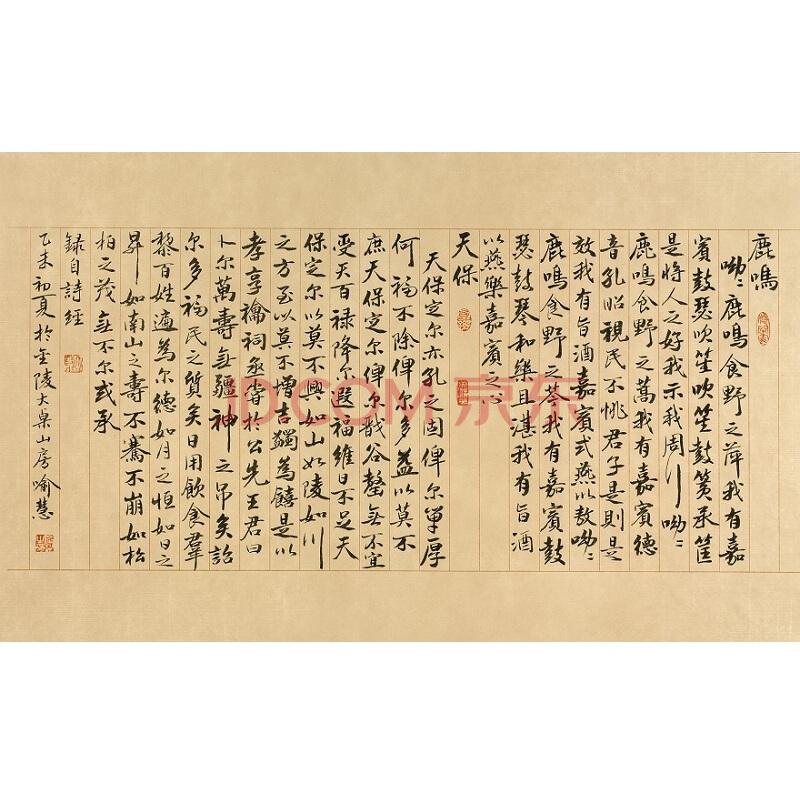 鹿鳴
呦〻鹿鳴食野之萍我有嘉
賓鼓瑟吹笙吹笙鼓簧承筐
是將人之好我示我周行呦〻
鹿鳴食野之蒿我有嘉賓德
音孔昭視民不恌君子是則是
效我有旨酒嘉賓式燕以敖呦〻
鹿鳴食野之芩我有嘉賓鼓
瑟鼓琴和樂且湛我有旨酒
以燕樂嘉賓之心
天保
天保定尔亦孔之固俾尔單厚
何福不除俾尔多益以莫不
庶天保定尔俾尔戩谷罄無不宜
受天百禄降尔遐福維日不足天
保定尔以莫不興如山如陵如川
之方至以莫不增吉蠲為饎是以
孝享禴祠烝嘗於公先王君曰
卜尔萬壽無疆神之吊矣詒
尔多福民之質矣日用飲食羣
黎百姓遍為尔德如月之恒如日之
昇如南山之壽不騫不崩如松
柏之茂無不尔或承
録自詩經
乙未初夏於金陵大桌山房喻慧
JD.COM 京东